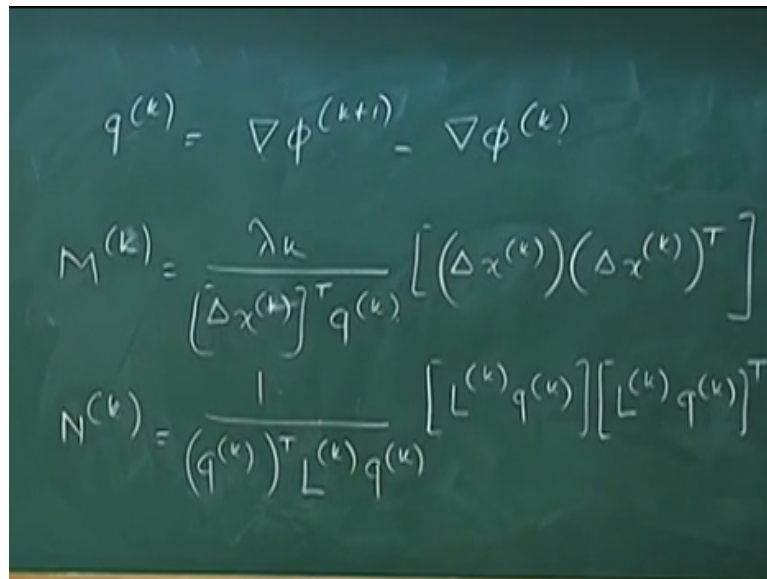 q^(k) = ∇φ^(k+1) - ∇φ^(k)
M^(k) = λk / [Δx^(k)]^T q^(k) [(Δx^(k))(Δx^(k))^T]
N^(k) = 1 / (q^(k))^T L^(k) q^(k) [L^(k) q^(k)][L^(k) q^(k)]^T